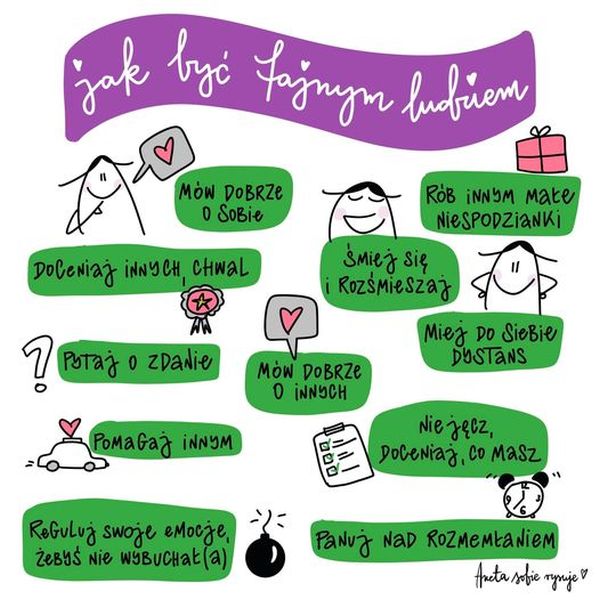 jak być fajnym ludziem
MÓW DOBRZE
O SOBIE
RÓB INNYM MAŁE
NIESPODZIANKI
DOCENIAJ INNYCH, CHWAL
ŚMIEJ SIĘ
I ROZŚMIESZAJ
MIEJ DO SIEBIE
DYSTANS
PYTAJ O ZDANIE
MÓW DOBRZE
O INNYCH
POMAGAJ INNYM
NIE JĘCZ,
DOCENIAJ, CO MASZ
REGULUJ SWOJE EMOCJE,
ŻEBYŚ NIE WYBUCHAŁ(A)
PANUJ NAD ROZMEMŁANIEM
Aneta sobie rysuje